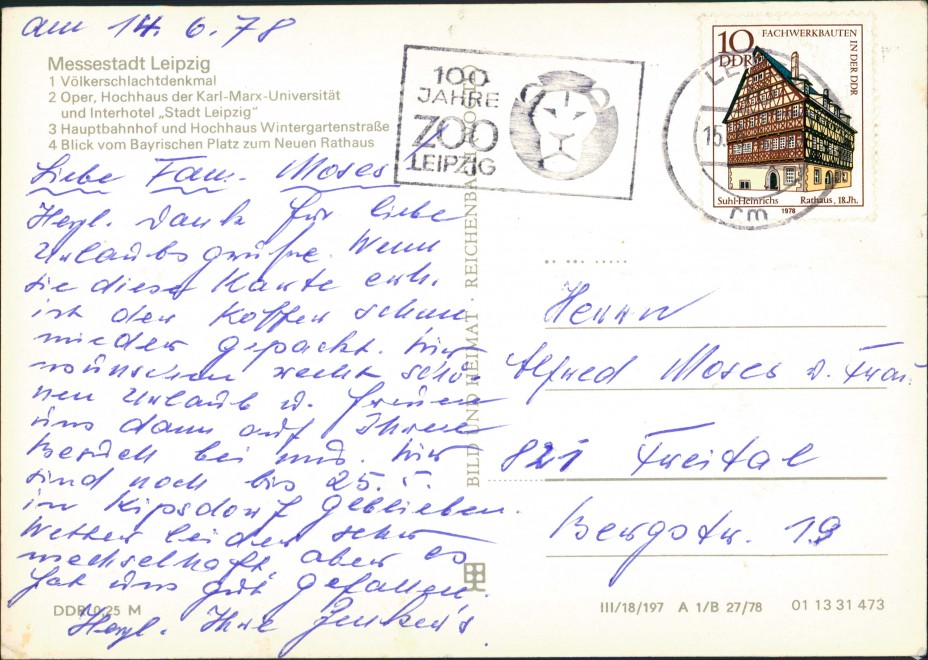 am 14. 6. 78
Messestadt Leipzig
1 Völkerschlachtdenkmal
2 Oper, Hochhaus der Karl-Marx-Universität
und Interhotel „Stadt Leipzig"
3 Hauptbahnhof und Hochhaus Wintergartenstraße
4 Blick vom Bayrischen Platz zum Neuen Rathaus
Liebe Fam. Moses
Herzl. Dank für liebe
Urlaubsgrüße. Wenn
sie diese Karte erh.
ist der Koffer schon
wieder gepackt. Wir
wünschen recht schö-
nen Urlaub u. freuen
uns dann auf Ihren
Besuch bei uns. Wir
sind noch bis 25. 5.
in Kipsdorf geblieben.
Wetter leider sehr
wechselhaft, aber es
hat uns gut gefallen.
Herzl. Ihre
DDR 0,25 M
BILD UND HEIMAT · REICHENBACH
100
JAHRE
ZOO
LEIPZIG
10
DDR
FACHWERKBAUTEN
IN DER DDR
Suhl-Heinrichs Rathaus, 18.Jh.
1978
Herrn
Alfred Moses u. Frau
821 Freital
Bergstr. 19
III/18/197 A 1/B 27/78 01 13 31 473